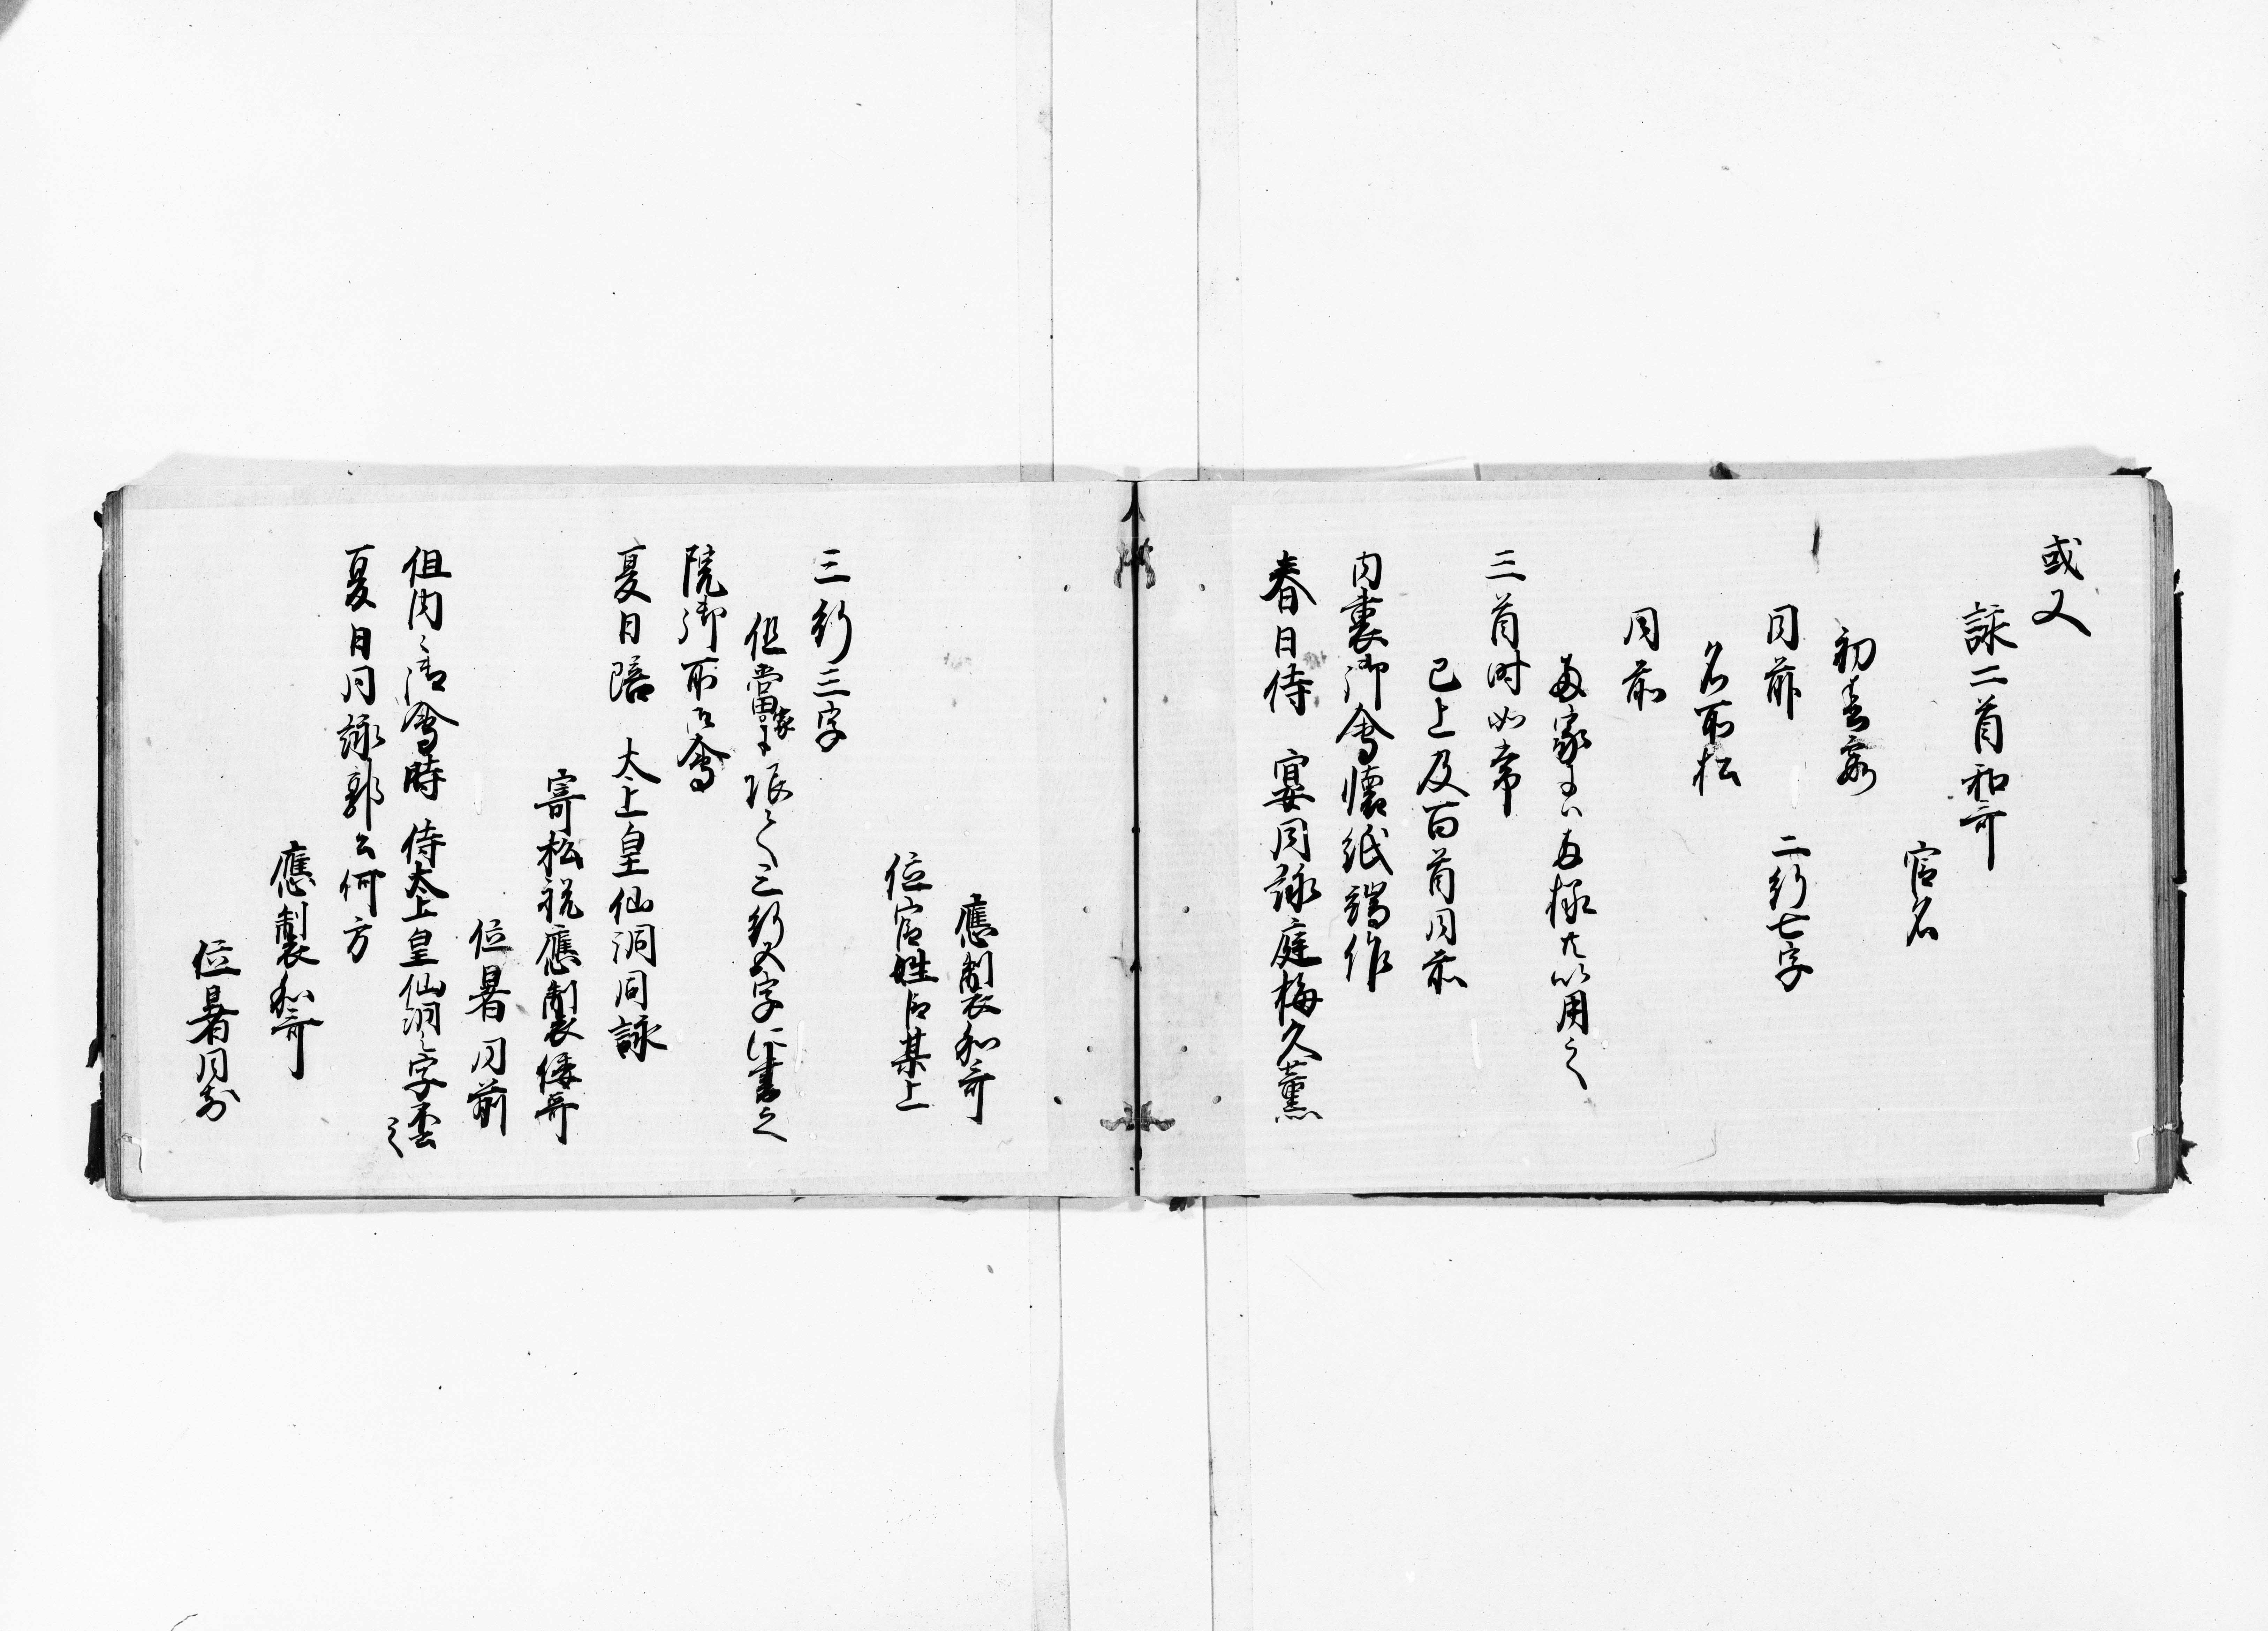 或又
詠二首和哥
官名
初春霞
同前 二行七字
名所松
同前
両家
以用之
三首时如常
已上及百首同前
内裏御會懐紙端作
春日侍 宴同詠庭梅久薫
應製和哥
位官姓名某上
三行三字
但當家
三行五字に書之
院御所御會
夏日陪 太上皇仙洞同詠
寄松祝應製倭哥
位署同前
但内々御會時 侍太上皇仙洞之字不書之
夏日同詠郭公何方
應製和哥
位署同前